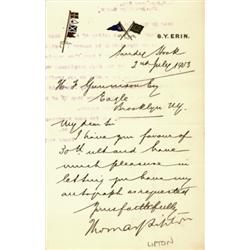 S.Y. ERIN.
Sandy Hook
2nd July 1903
H. F. Gunnison Esq
Eagle
Brooklyn N.Y.
My dear Sir
I have your favour of
30th ult and have
much pleasure in
letting you have my
autograph as requested
Yours faithfully
Thomas J Lipton
LIPTON